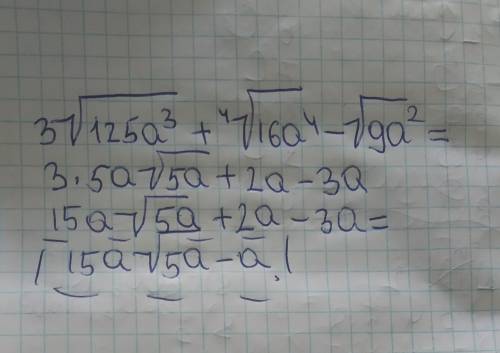 3√125a³ + ⁴√16a⁴ - √9a² =
3·5a√5a + 2a - 3a
15a√5a + 2a - 3a =
| 15a√5a - a. |